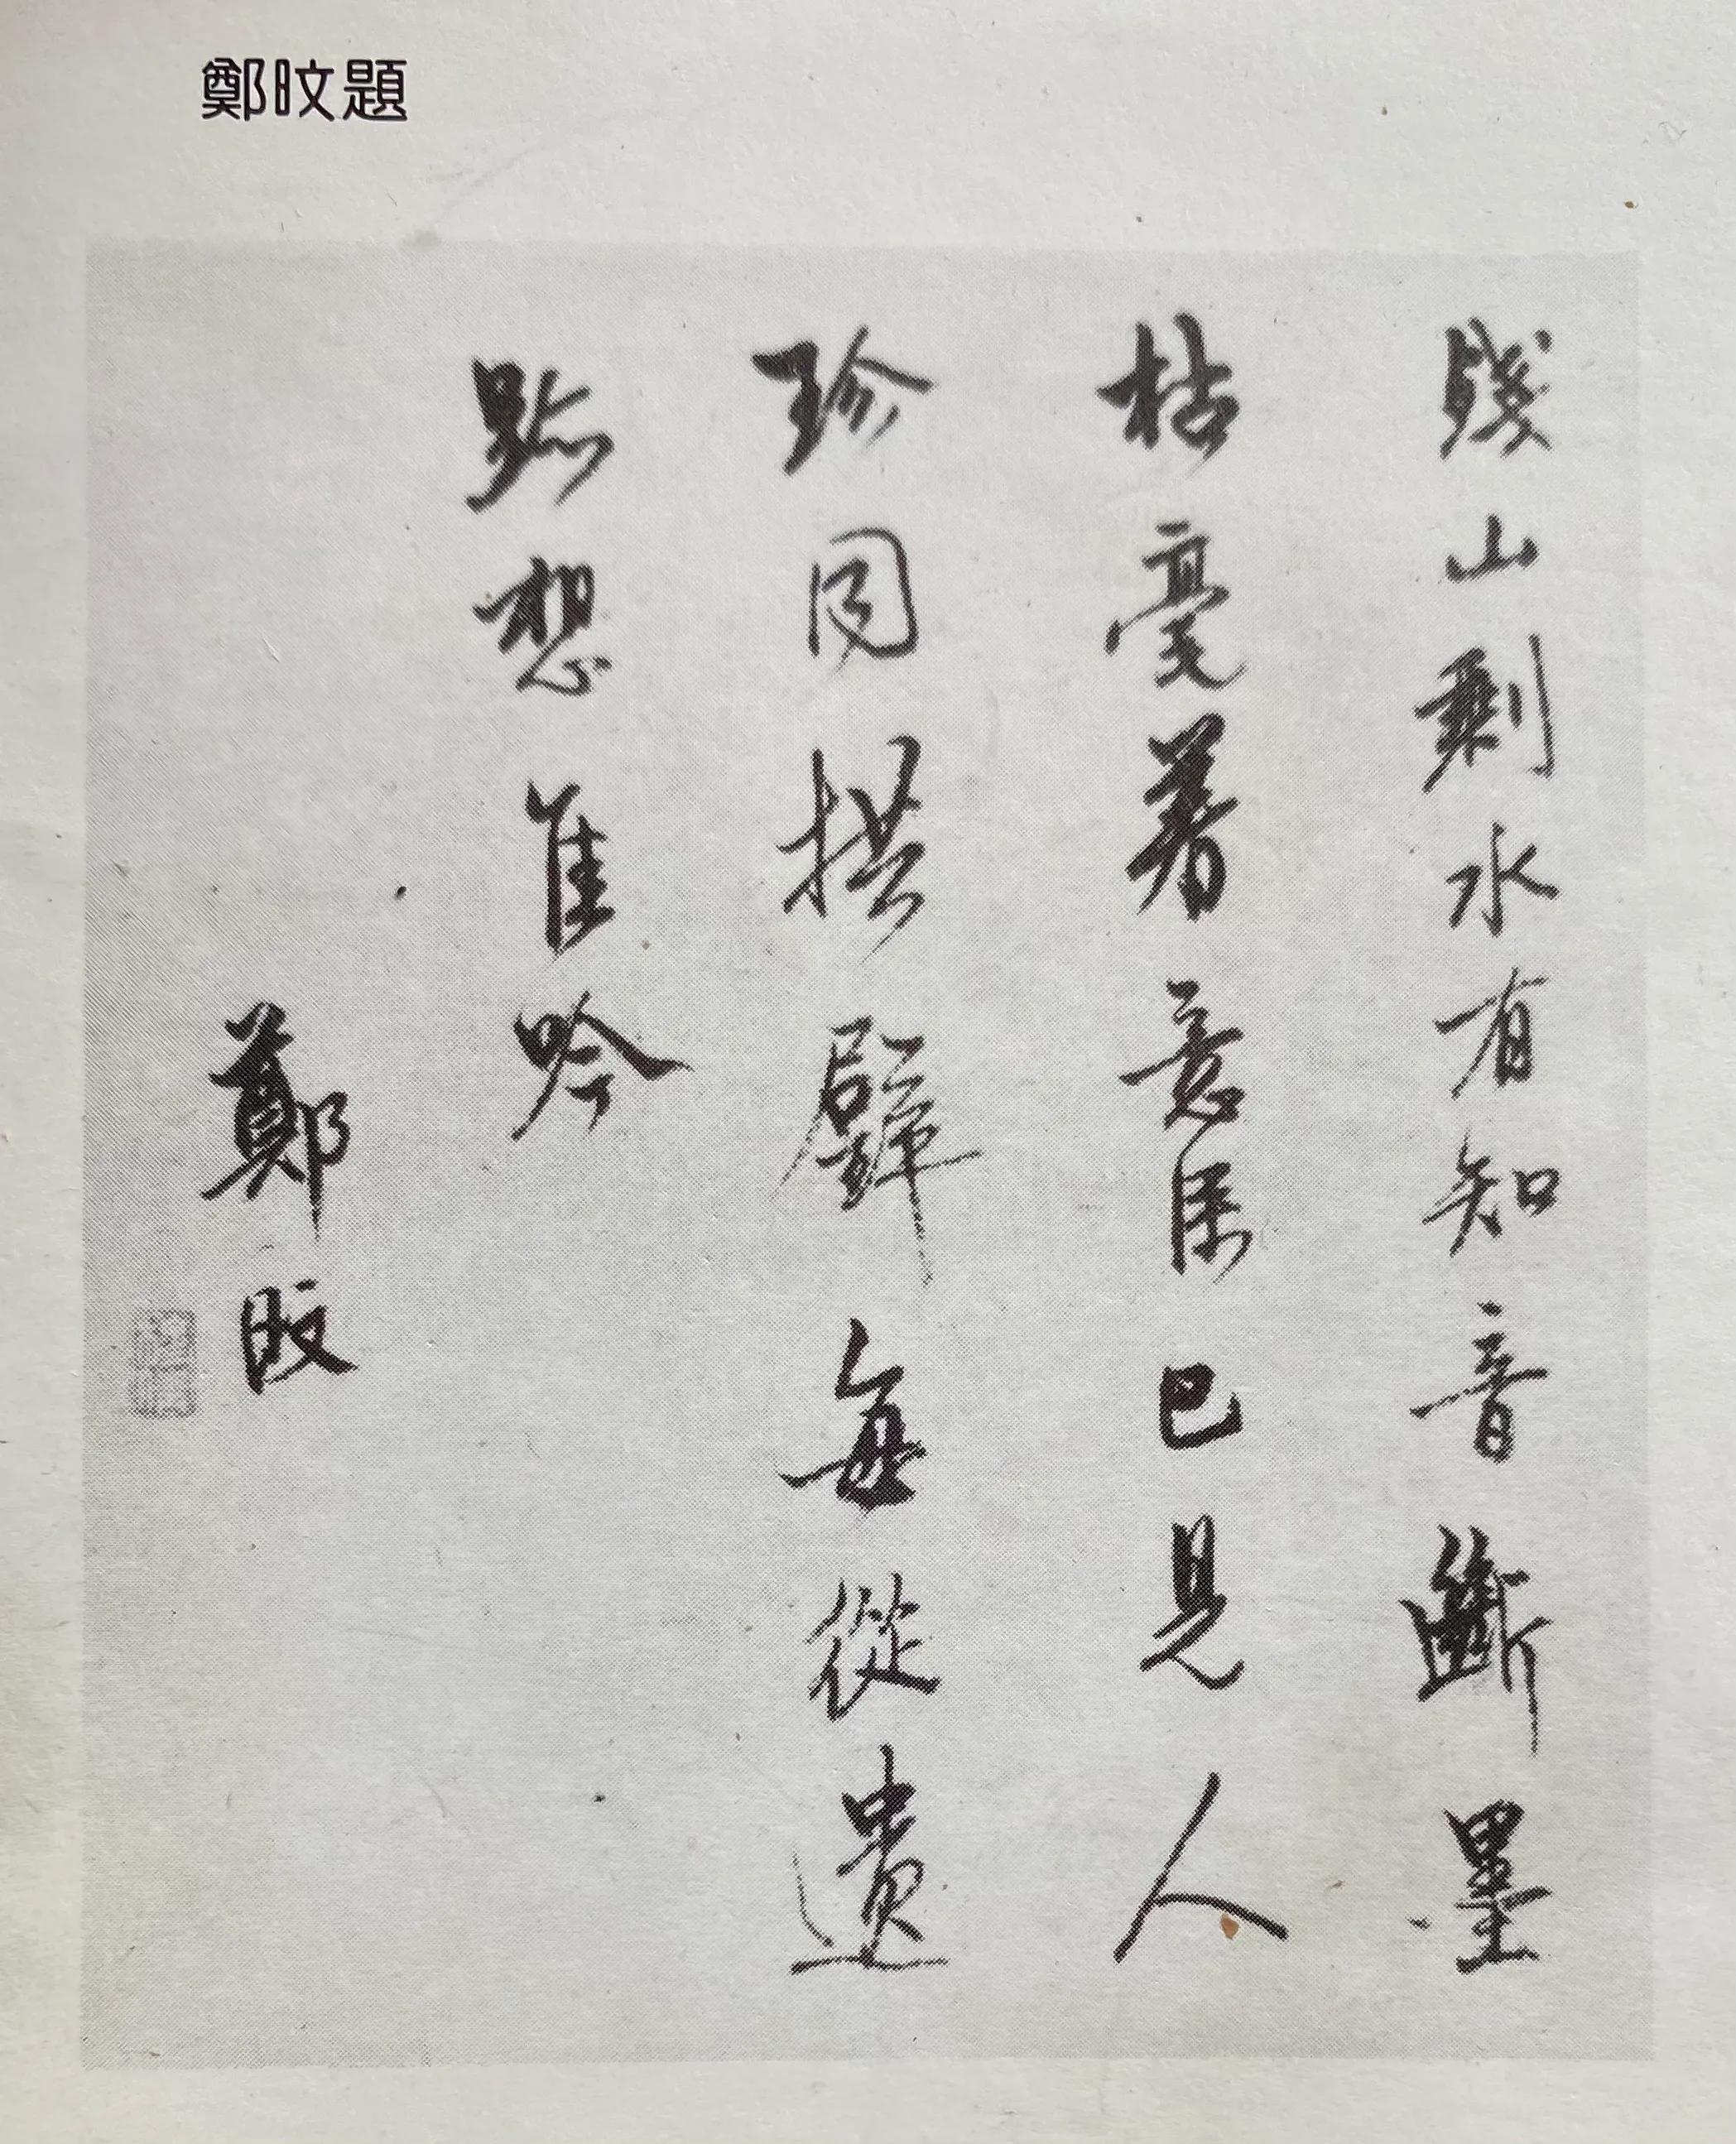 鄭旼題
殘山剩水有知音斷墨
枯毫著意深已見人
珍同拱璧每從遺
跡想准吟
鄭旼